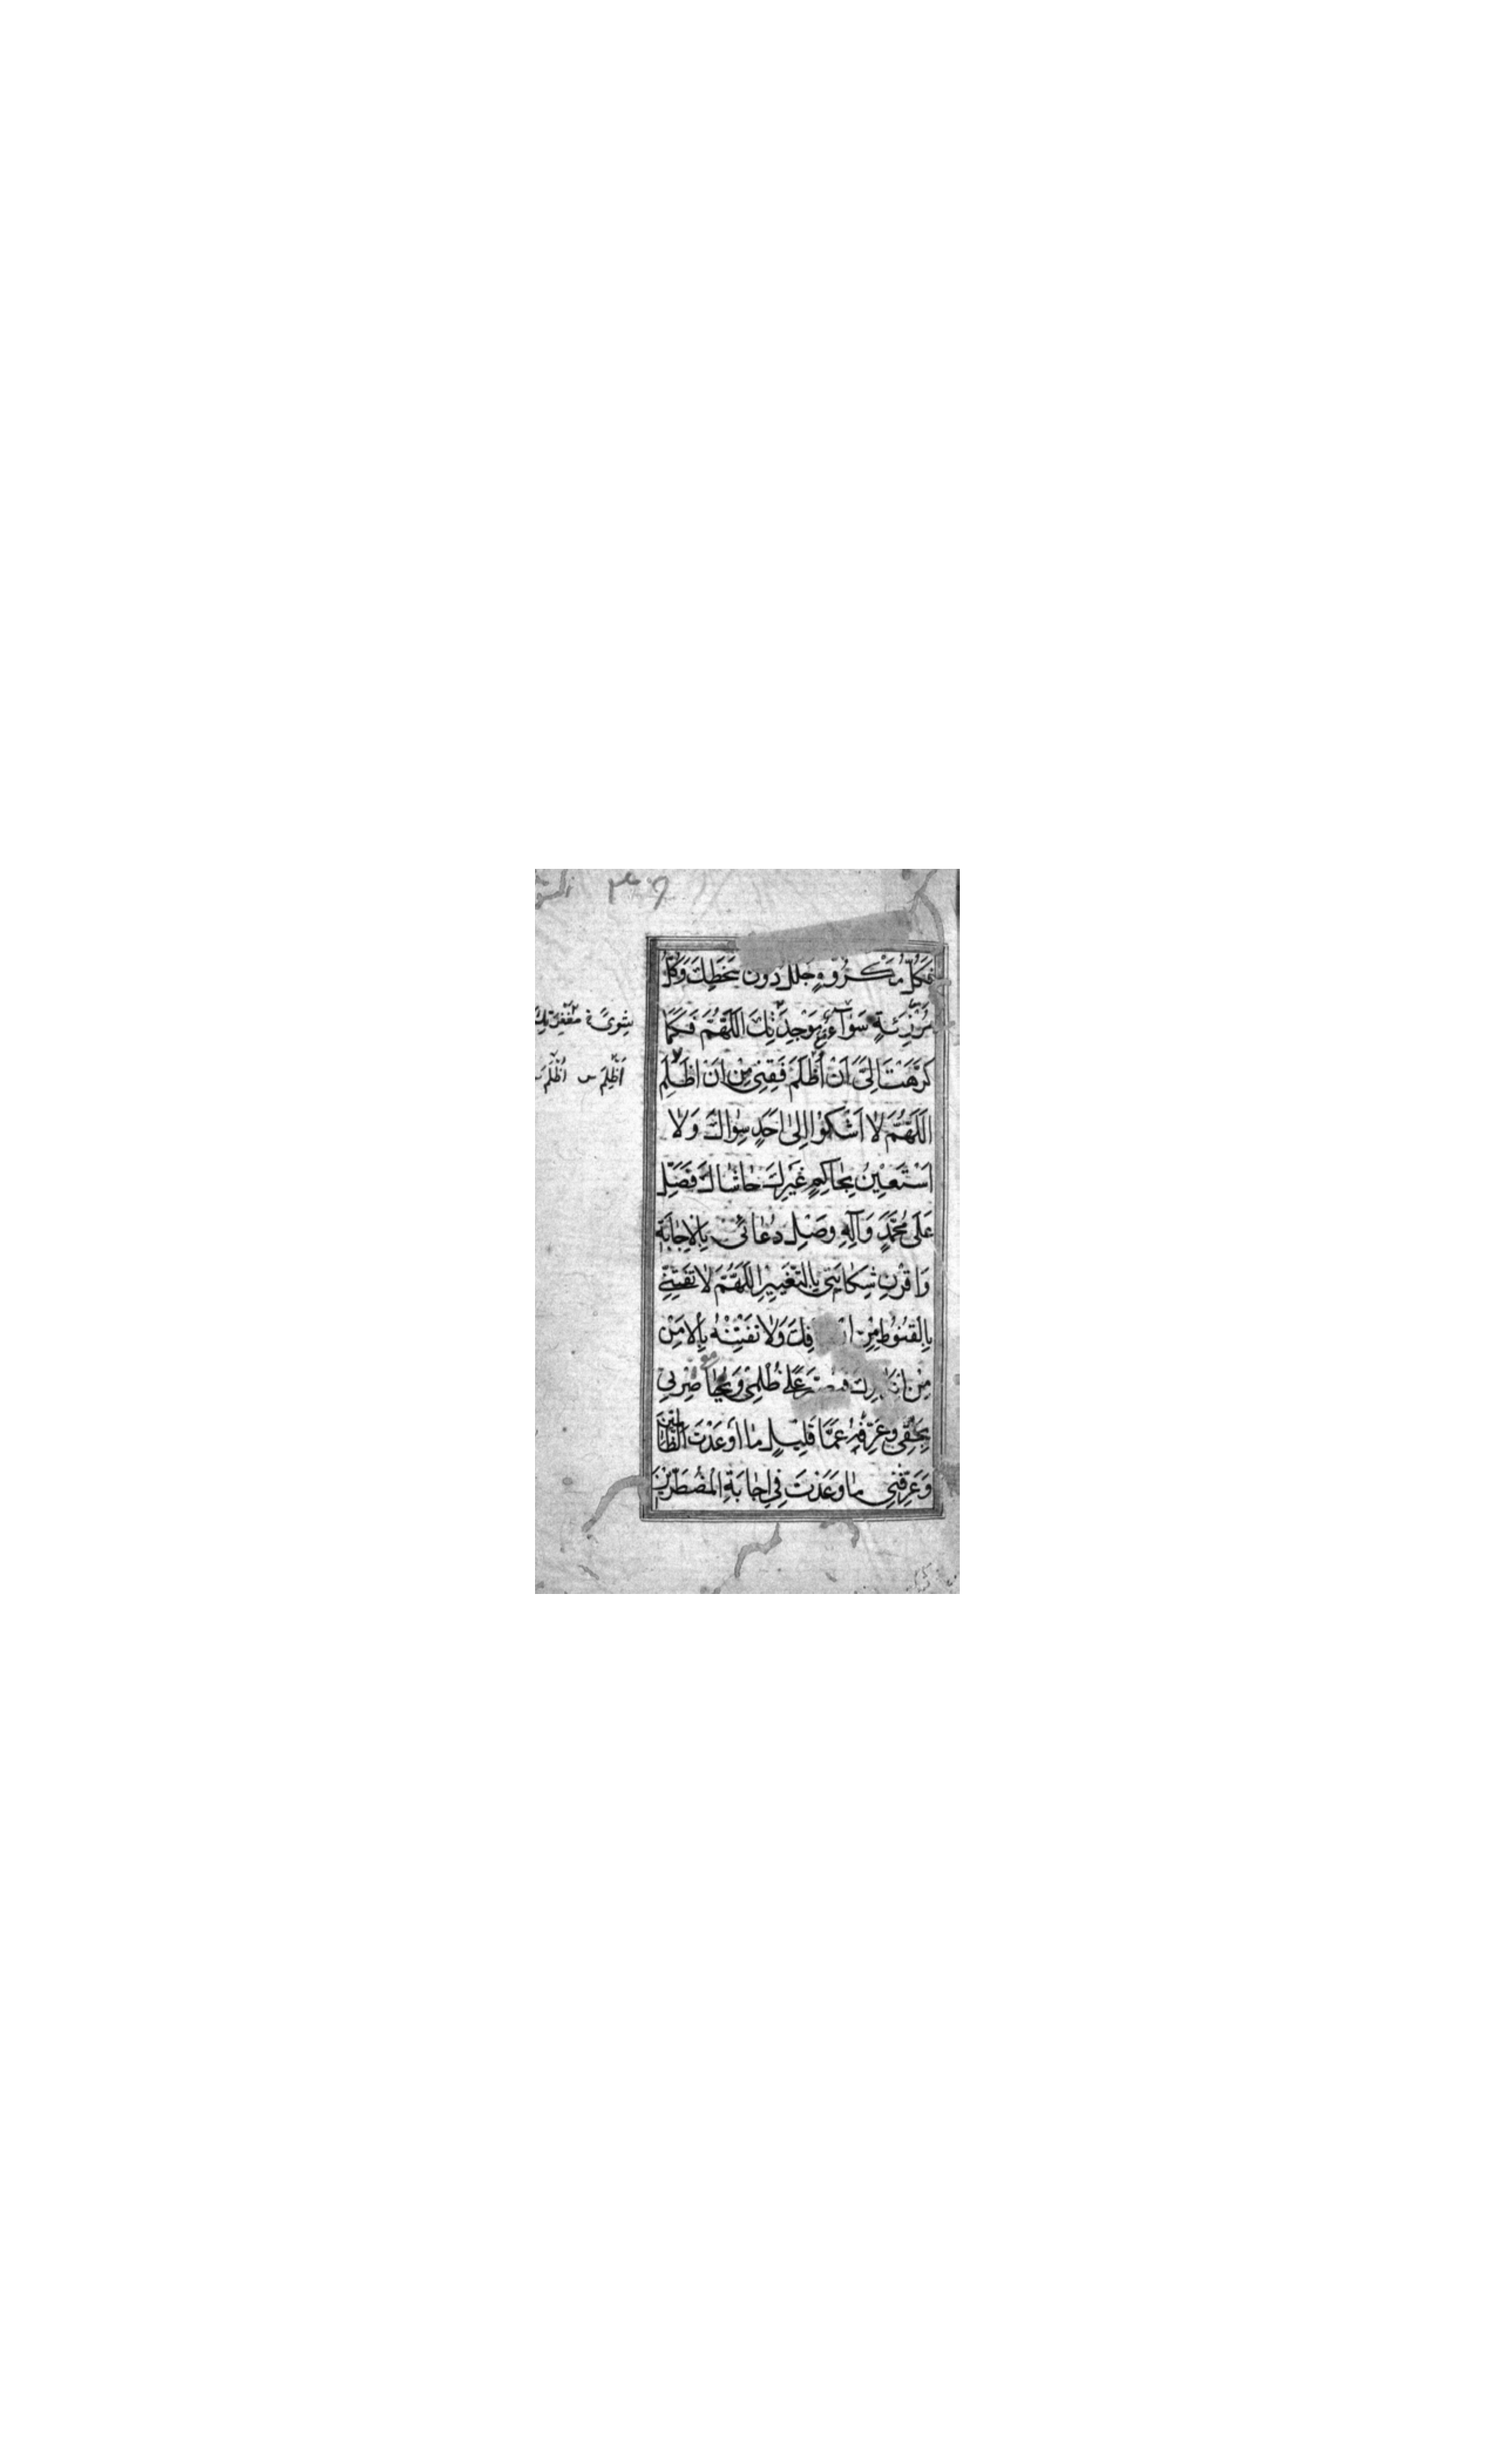 فَكُلُّ مَكْرُوهٍ جَلَلٌ دُونَ سَخَطِكَ وَكُلُّ
مَرْزِئَةٍ سَوَآءٌ مَعَ مَوْجِدَتِكَ اَللّٰهُمَّ فَكَمَا
كَرَّهْتَ اِلَيَّ اَنْ اُظْلَمَ فَقِنِي مِنْ اَنْ اَظْلِمَ
اَللّٰهُمَّ لا اَشْكُوْا اِلىٰ اَحَدٍ سِوٰاكَ وَلاٰ
اَسْتَعِيْنُ بِحٰاكِمٍ غَيْرِكَ حٰاشٰاكَ فَصَلِّ
عَلىٰ مُحَمَّدٍ وَآلِهِ وَصِلْ دُعٰائي بِالاِجٰابَةِ
وَاقْرِنْ شِكٰايَتِي بِالتَّغْيِيرِ اَللّٰهُمَّ لاٰ تَفْتِنِّي
بِالْقُنُوطِ مِنْ فِكَ وَلاٰ تَفْتِنْهُ بِالاَمْنِ
مِنْ اِنْكٰارِكَ عَلىٰ ظُلْمِي وَ
بِحَقِّي وَعَرِّفْهُ عَمّٰا قَلِيْلٍ مٰا اَوْعَدْتَ الظّٰالِمِينَ
وَعَرِّفْنِي مٰا وَعَدْتَ فِي اِجٰابَةِ الْمُضْطَرِّينَ
اَظْلِمَ س اُظْلَمَ س